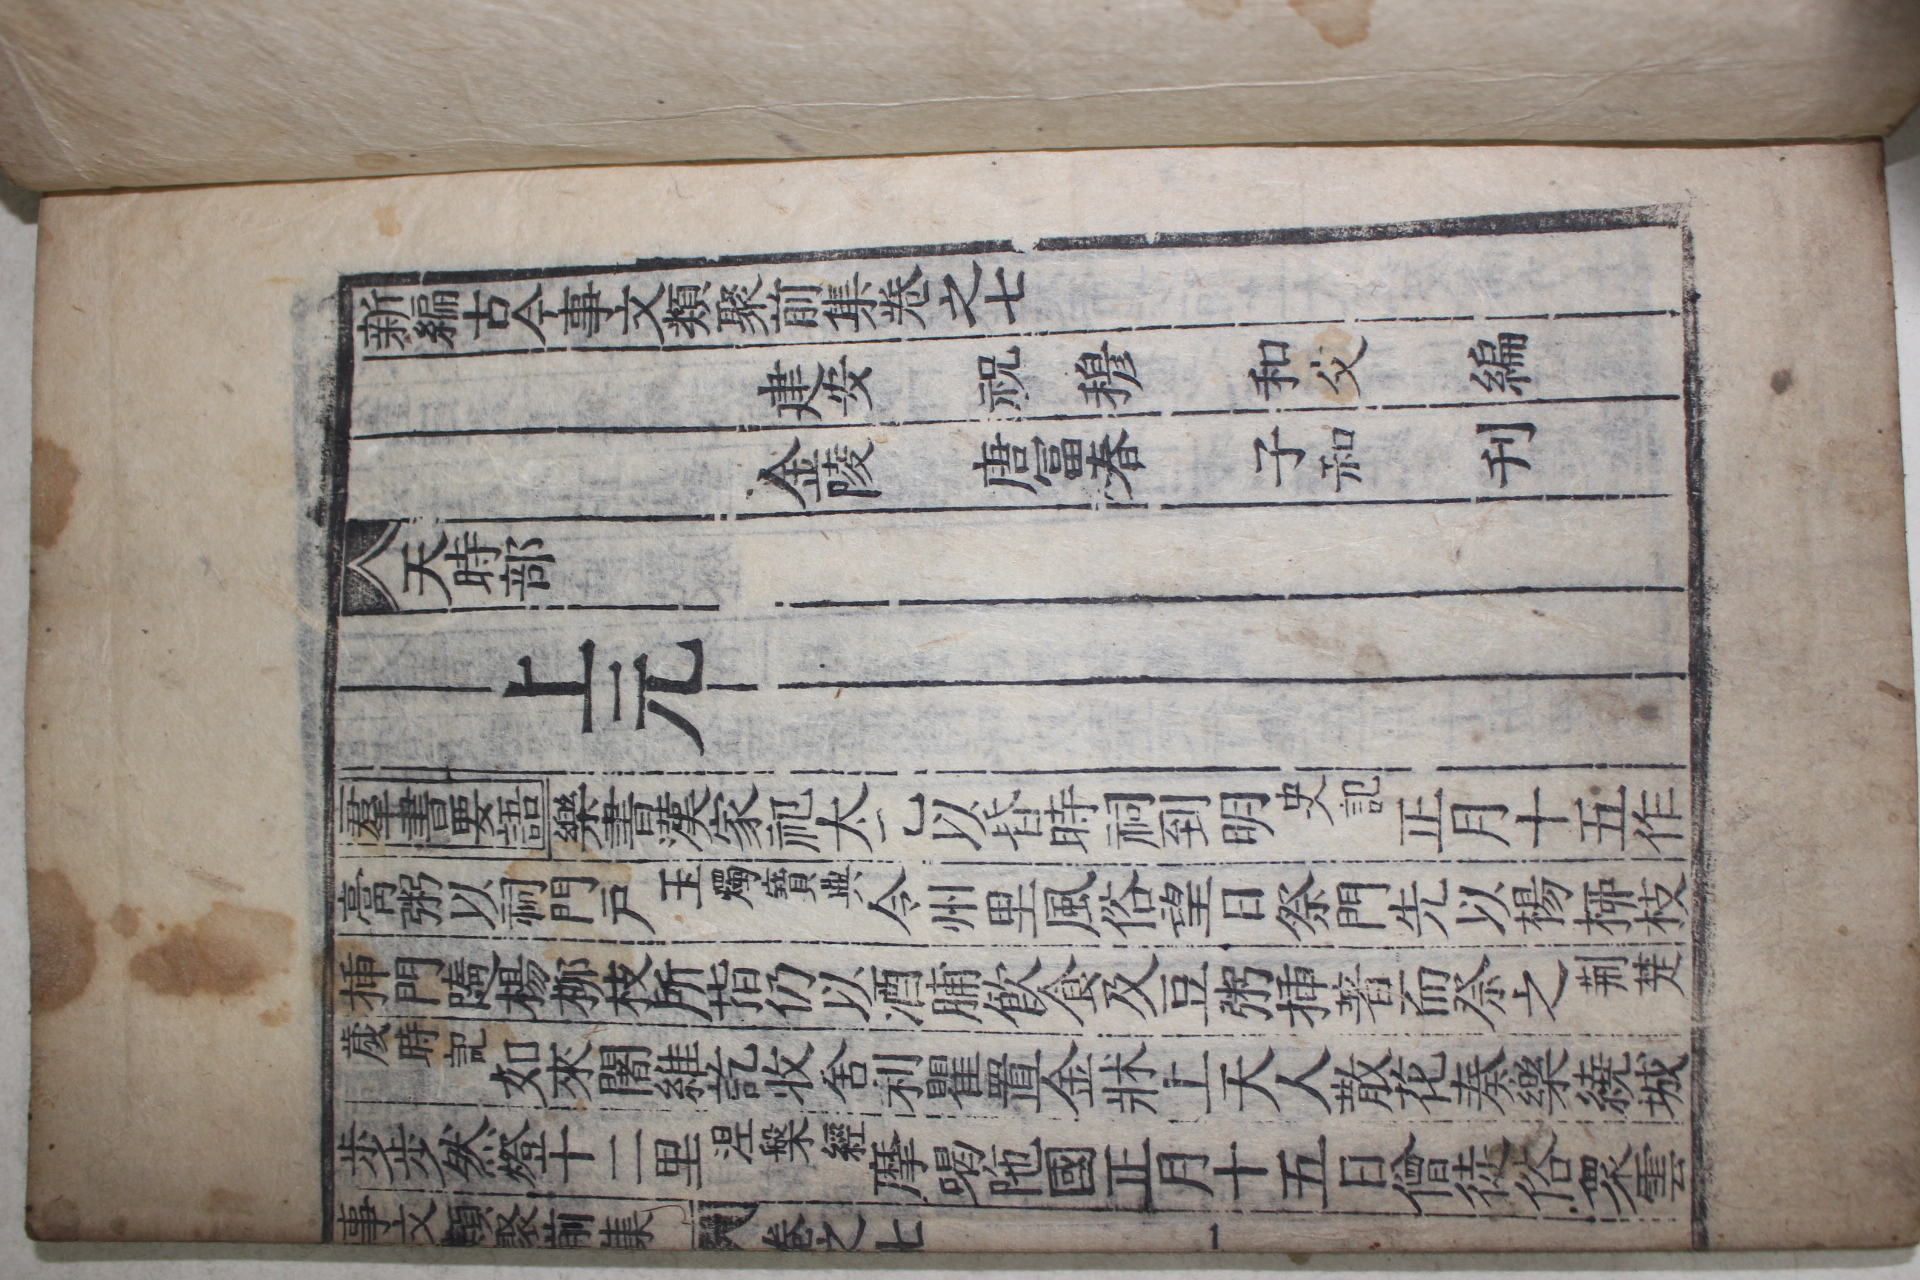 新編古今事文類聚前集卷之七
建安 祝 穆 和父 編
金陵 唐富春 子和 刊
天時部
上元
羣書要語 樂書漢家祀太一乙以昏時祠到明 史記 正月十五作
膏粥以祠門戶 玉燭寶典 今州里風俗望日祭門先以楊桺枝
揷門隨楊桺枝所指仍以酒脯飮食及豆粥揷著而祭之 荆楚
歲時記 如來闍維訖收舍利罌置金牀上天人散花奏樂繞城
步步然燈十二里 涅槃經 摩竭陁國正月十五日僧徒俗衆雲
事文類聚前集 卷之七 一